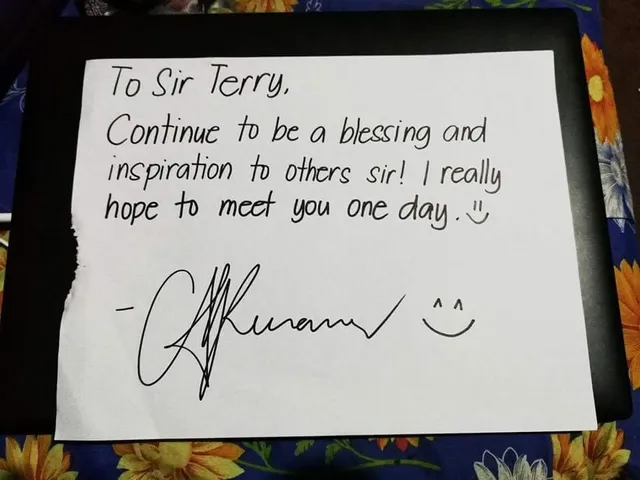 To Sir Terry,
Continue to be a blessing and
inspiration to others sir! I really
hope to meet you one day.